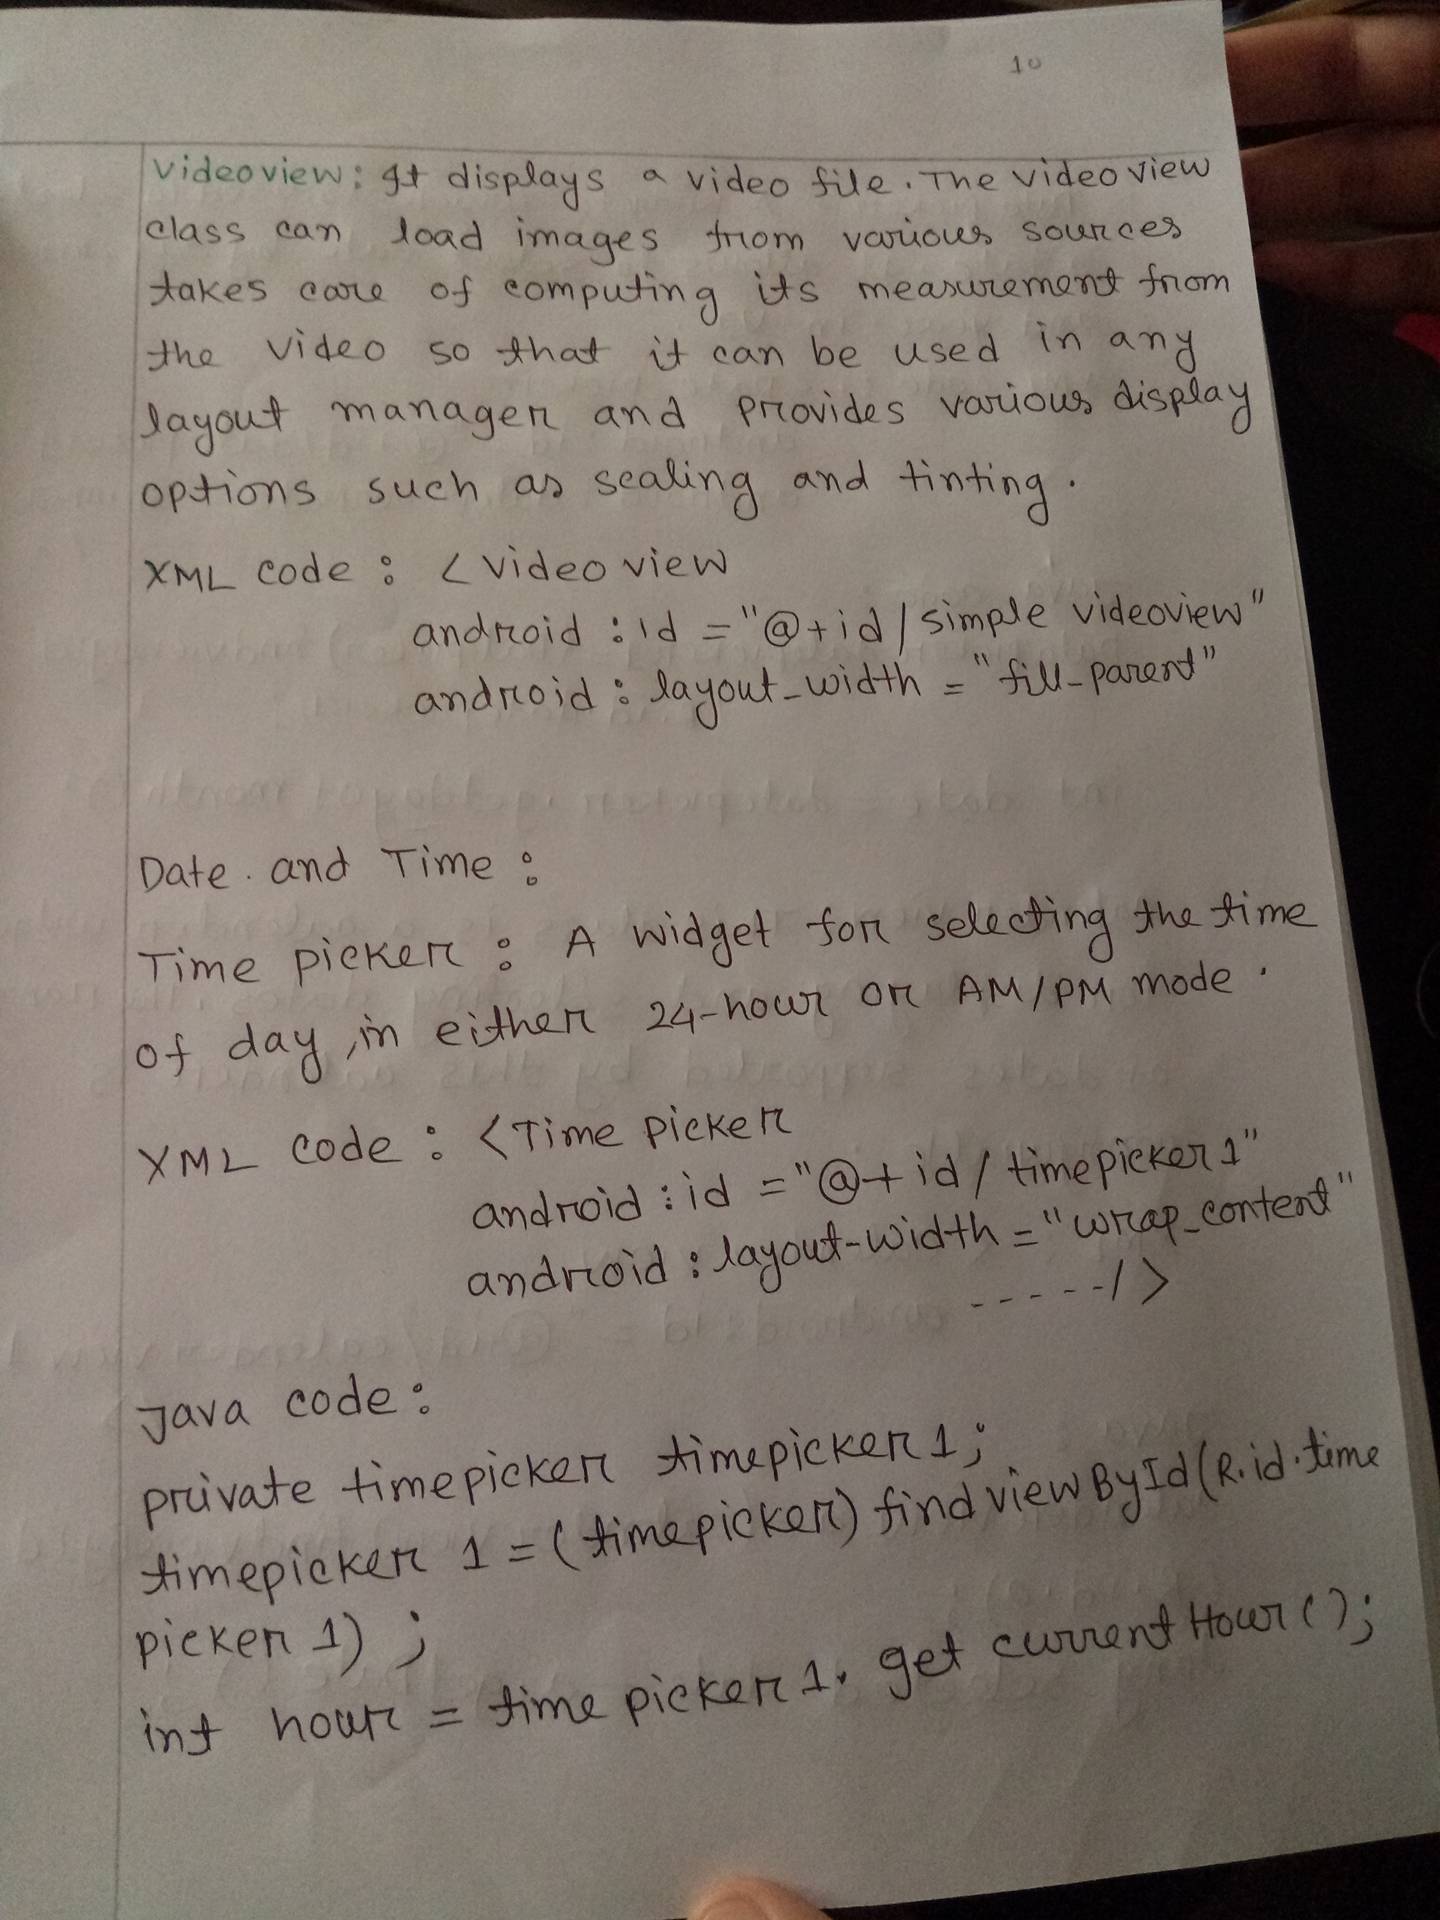 10
Videoview: It displays a video file. The video view
class can load images from various sources
takes care of computing its measurement from
the video so that it can be used in any
layout manager and provides various display
options such as scaling and tinting.
XML code : <Video view
android : id = "@+id / simple videoview"
android : layout_width = "fill_parent"
Date and Time :
Time picker : A widget for selecting the time
of day, in either 24-hour or AM/PM mode.
XML code : <Time picker
android : id = "@+id / timepicker1"
android : layout-width = "wrap_content"
-----/>
Java code :
private timepicker timepicker1;
timepicker 1 = (timepicker) find view ById (R.id.time
picker 1) ;
int hour = time picker 1. get current Hour ( );